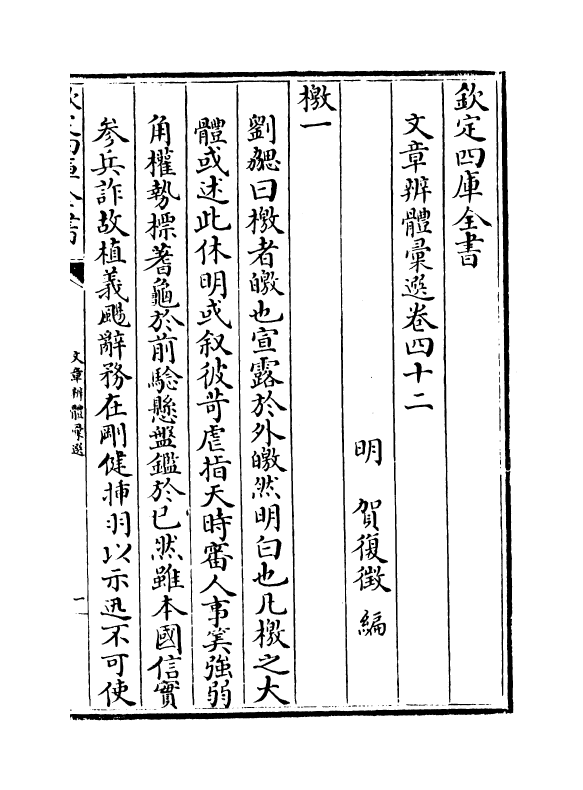 欽定四庫全書
文章辨體彙選卷四十二
明 賀復徵 編
檄一
劉勰曰檄者皦也宣露於外皦然明白也凡檄之大
體或述此休明或叙彼苛虐指天時審人事筭強弱
角權勢標蓍龜於前驗懸鞶鑑於已然雖本國信實
参兵詐故植義颺辭務在剛健揷羽以示迅不可使
文章辨體彙選
一